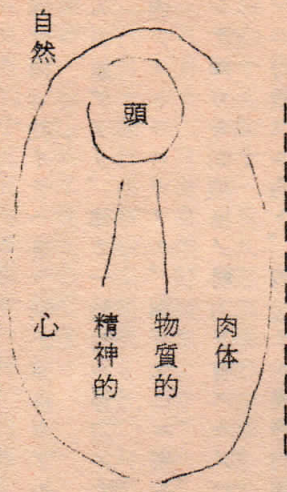 自然
頭
肉体
物質的
精神的
心